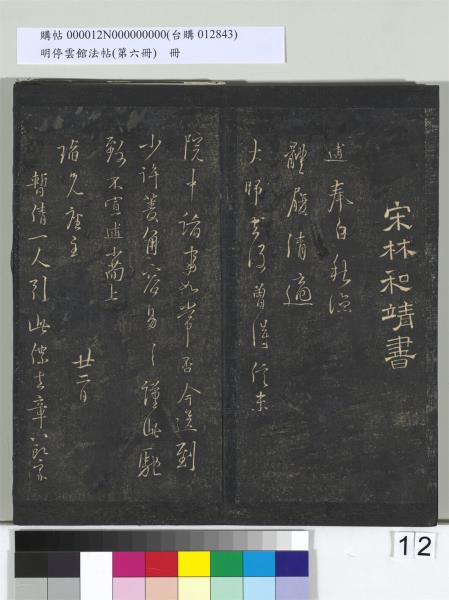 購帖 000012N000000000(台購 012843)
明停雲館法帖(第六冊) 冊
宋林和靖書
逋奉白秋深
體履清適
大師去後曾得信未
院中諸事如常否今送到
少許菱角容易〻謹此馳
致不宣逋上
瑞兄座主
廿二日
暫倩一人引此僕去章八郎家
12